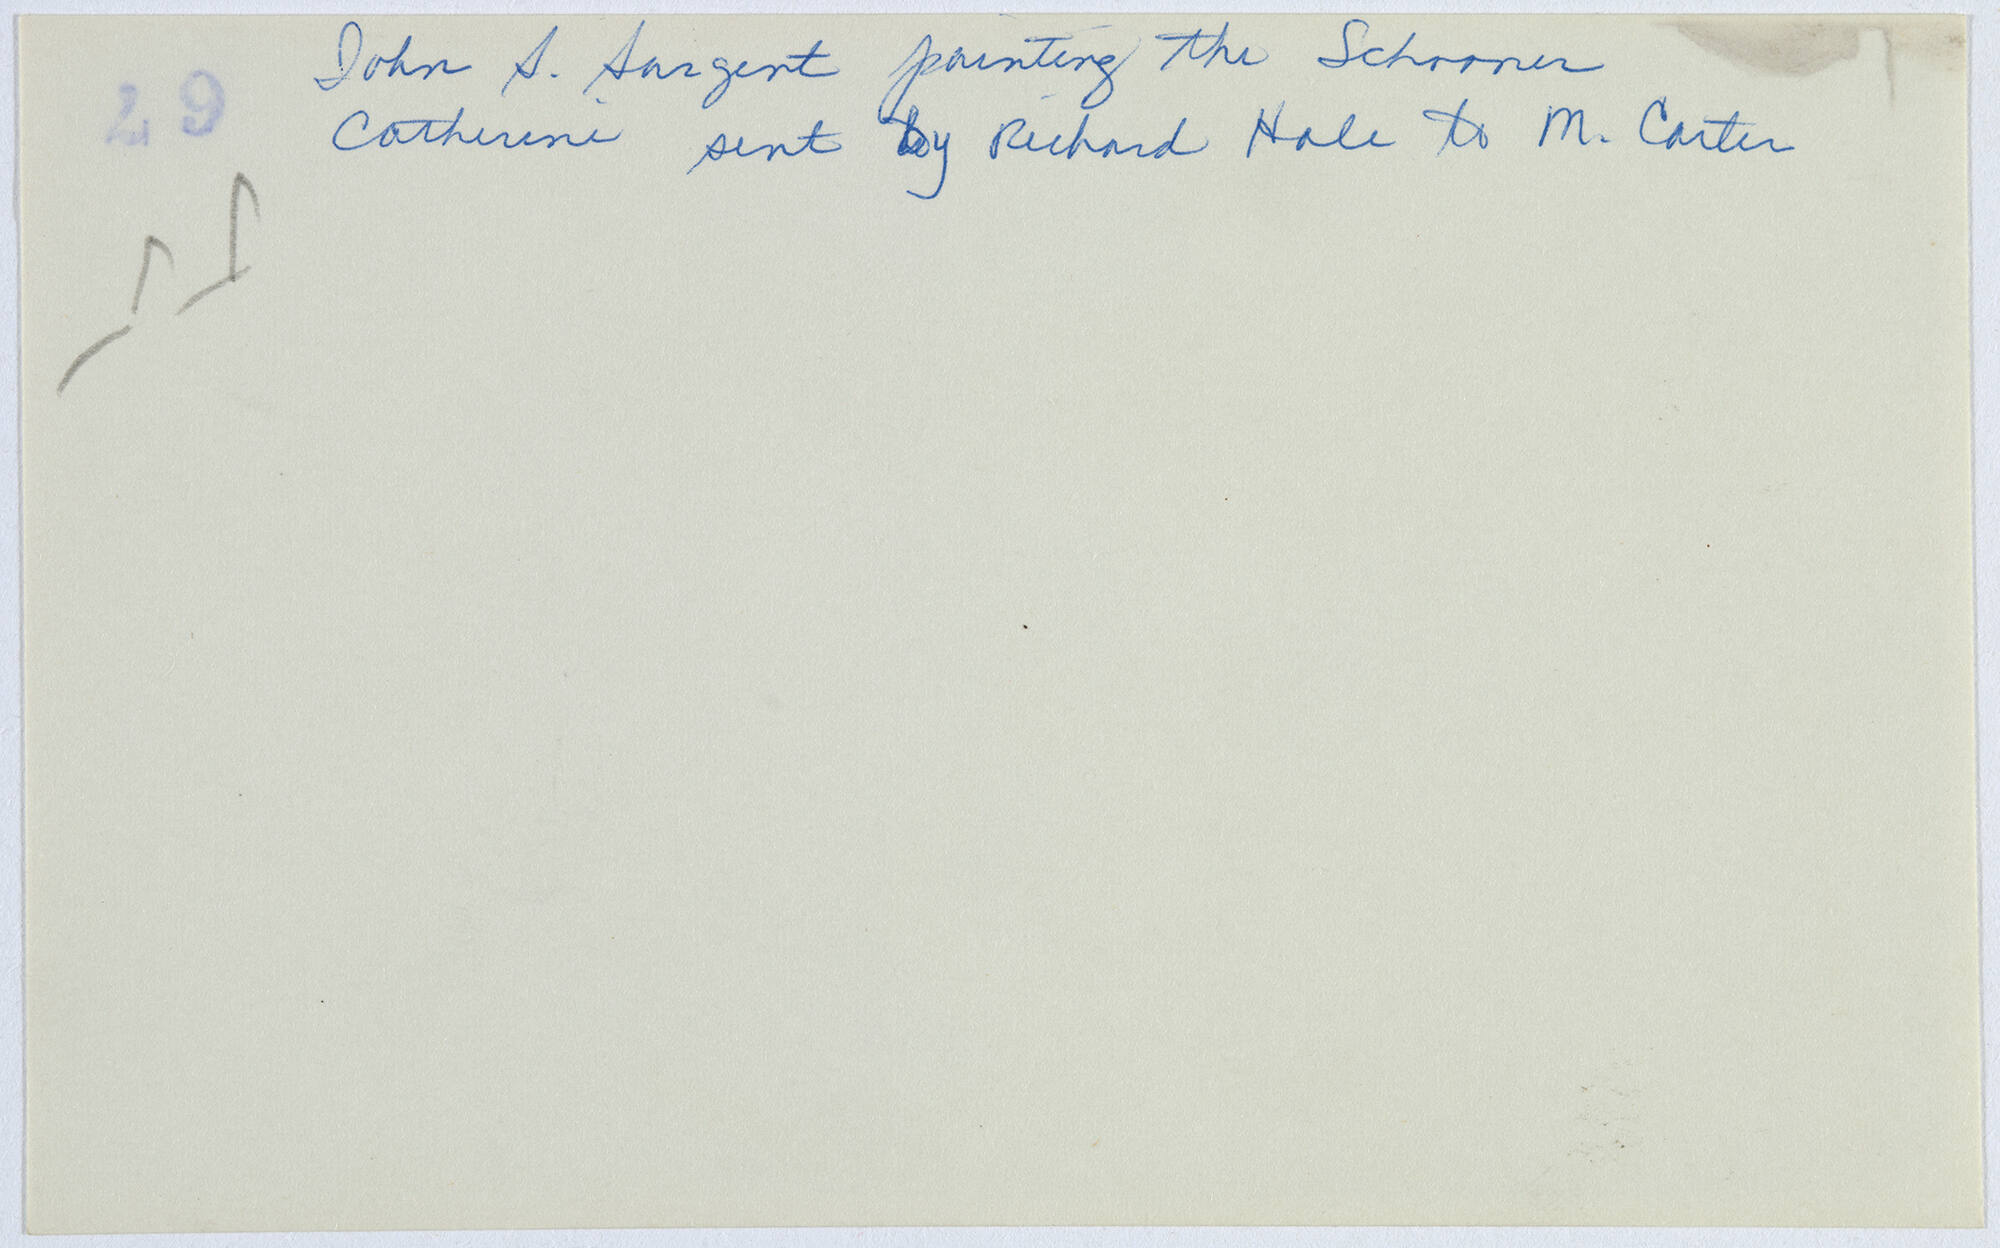 John S. Sargent painting the Schooner
29
Catherine sent by Richard Hale to M. Carter